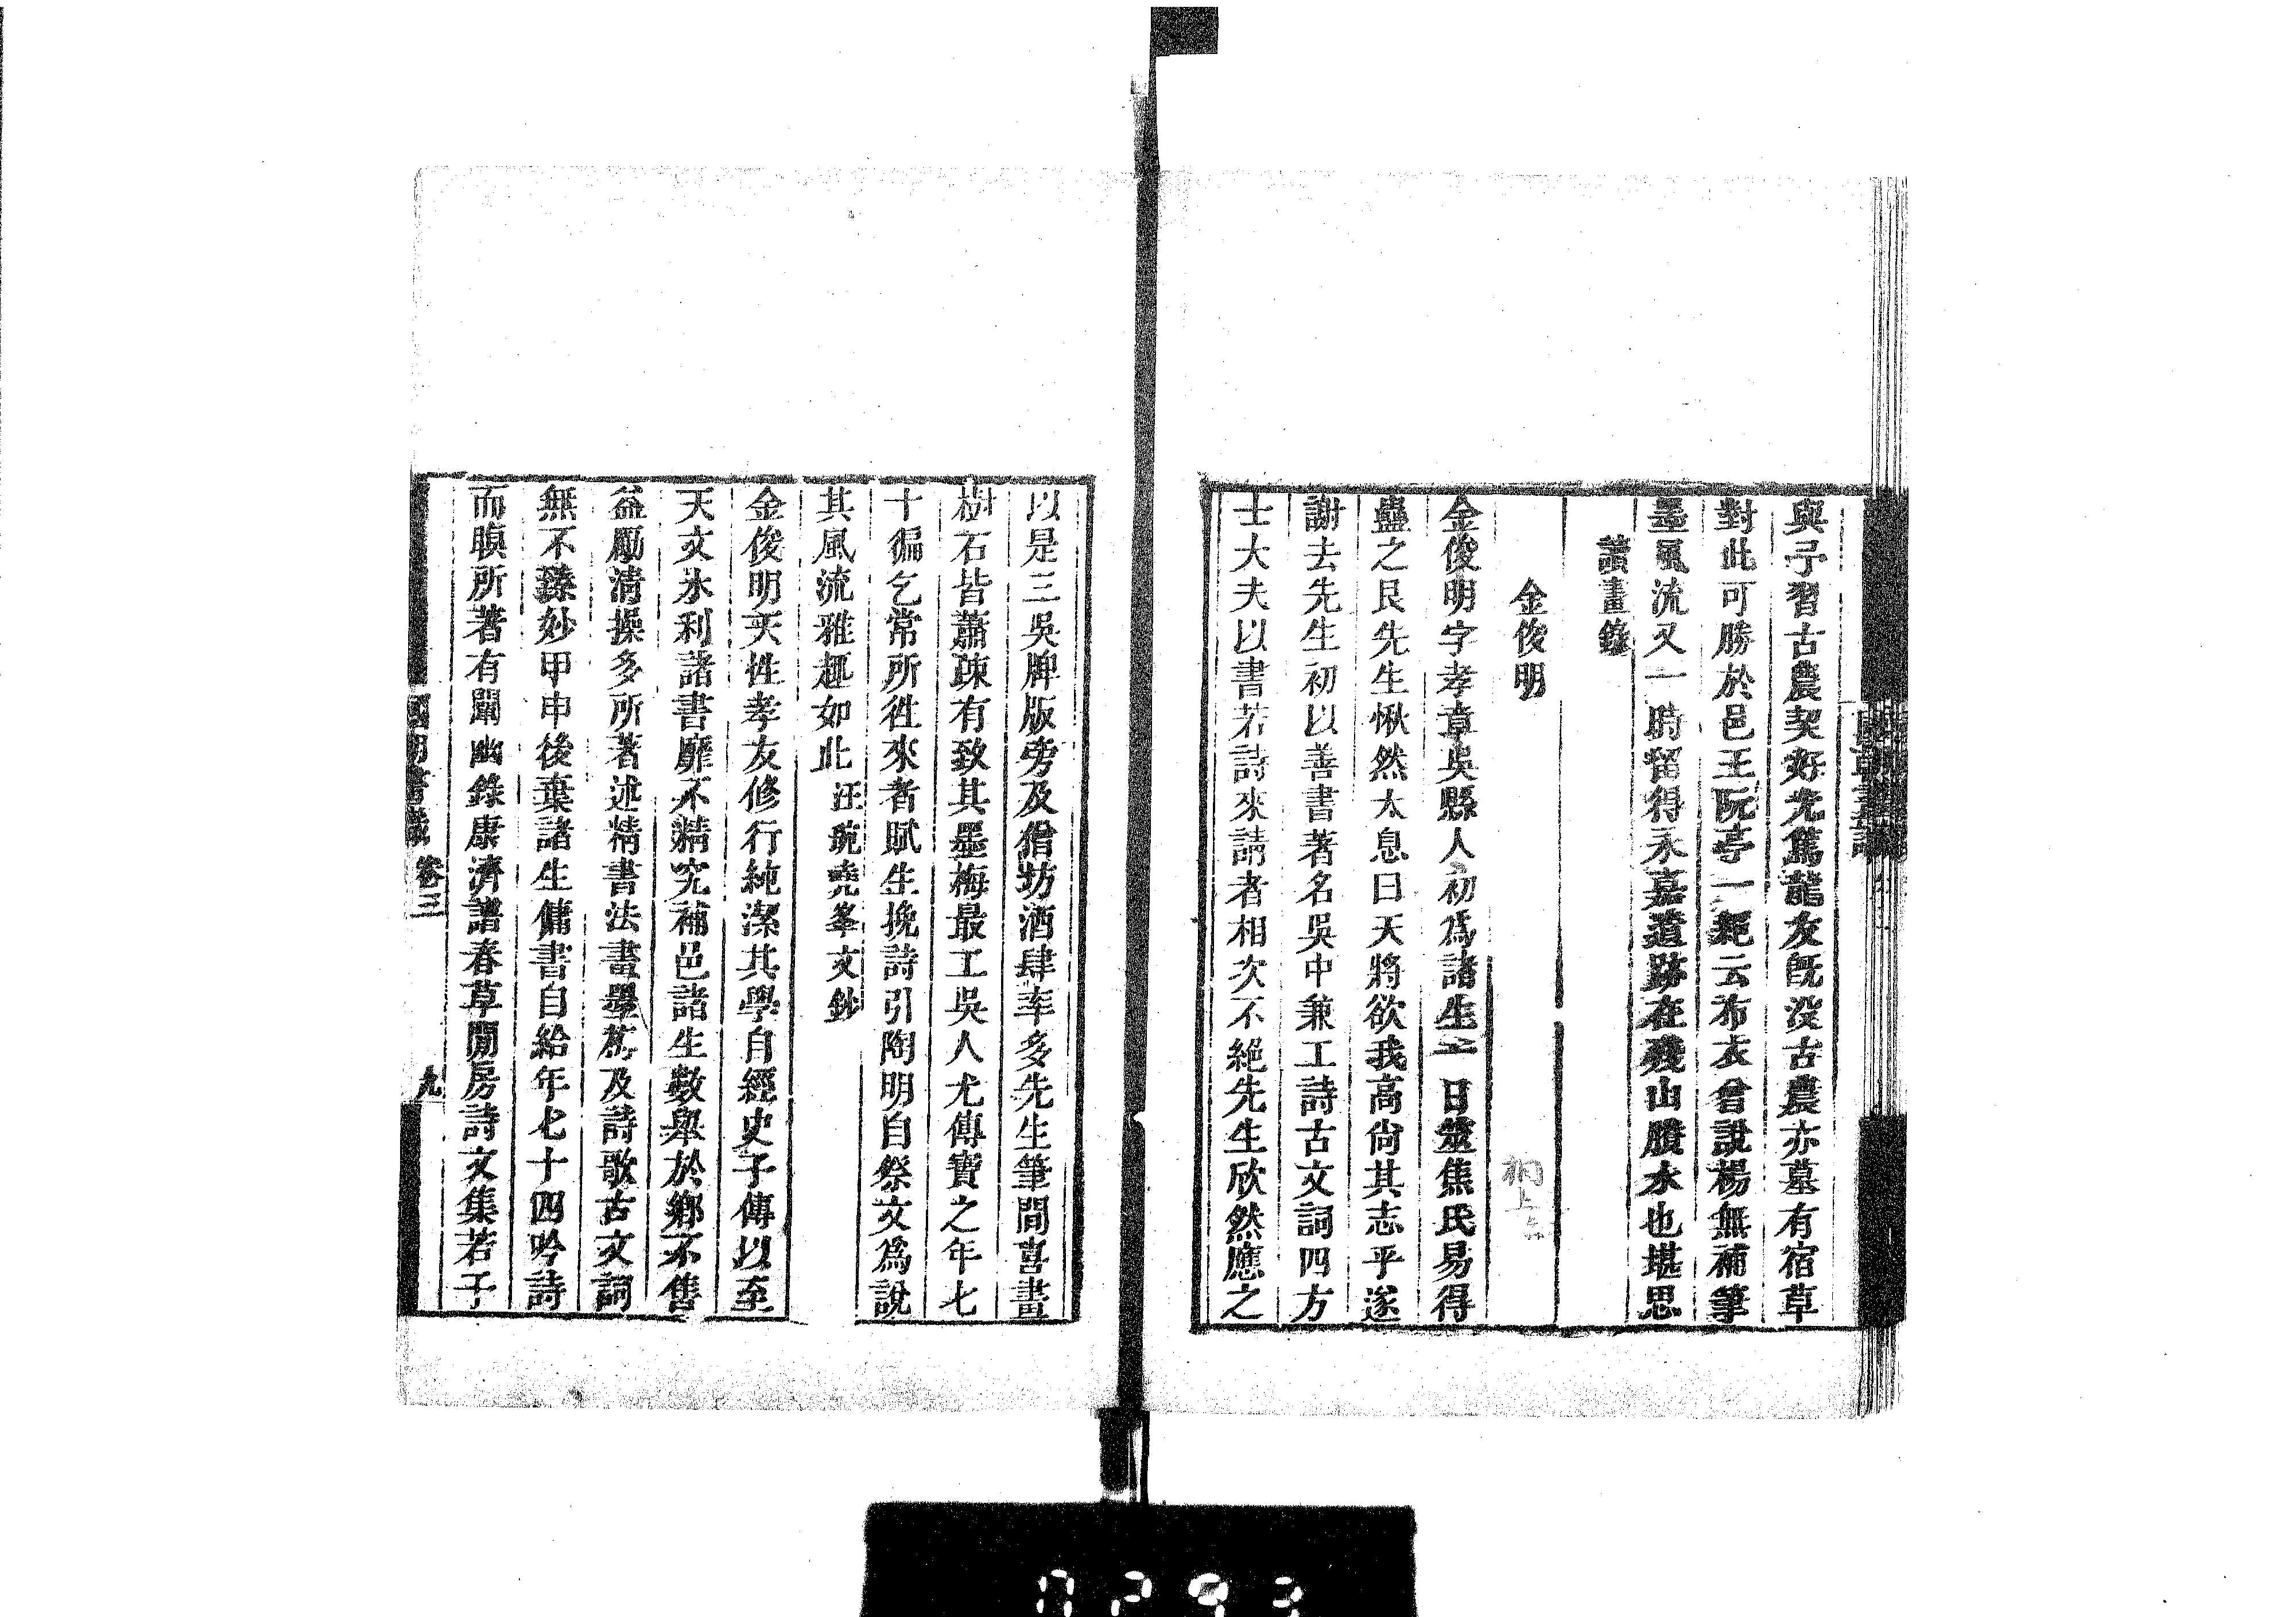 與予習古農契好尤篤龍友既沒古農亦墓有宿草
對此可勝於邑王阮亭一絕云布衣曾說楊無補筆
墨風流又一時留得永嘉遺跡在殘山賸水也堪思
讀畫錄
金俊明
金俊明字孝章吳縣人初爲諸生一日筮焦氏易得
蠱之艮先生愀然太息曰天將欲我高尚其志乎遂
謝去先生初以善書著名吳中兼工詩古文詞四方
士大夫以書若詩來請者相次不絕先生欣然應之
以是三吳牌版旁及僧坊酒肆率多先生筆間喜畫
樹石皆蕭疎有致其墨梅最工吳人尤傳寶之年七
十徧乞常所往來者賦生挽詩引陶明自祭文爲說
其風流雅趣如此 汪琬堯峯文鈔
金俊明天性孝友修行純潔其學自經史子傳以至
天文氷利諸書靡不精究補邑諸生數舉於鄉不售
益勵清操多所著述精書法畫墨蔦及詩歌古文詞
無不臻妙甲申後棄諸生傭書自給年七十四吟詩
而瞑所著有闡幽錄康濟譜春草閒房詩文集若子
國朝書識 卷三 九